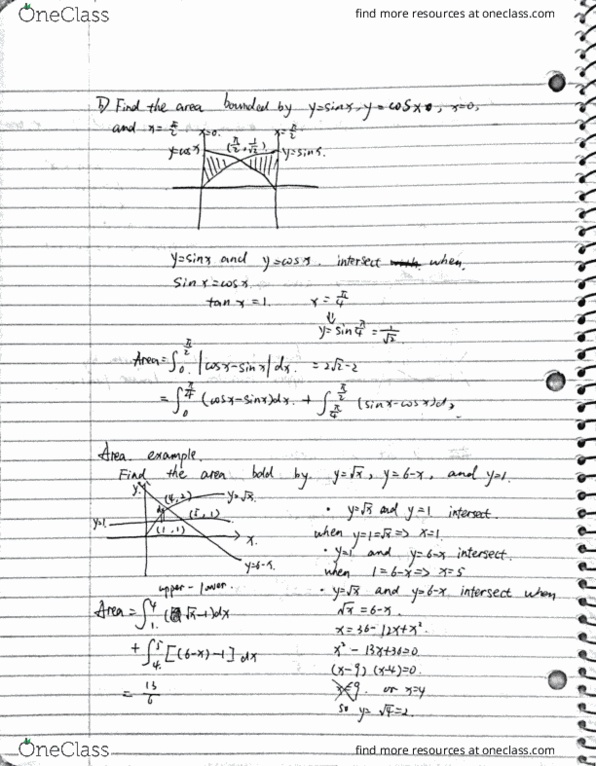 OneClass
find more resources at oneclass.com
b) Find the area bounded by y=sinx, y=cosx, x=0,
and x=π/2.
x=0.
x=π/2
y=cosx
(π/2, 1/√2)
y=sinx.
y=sinx and y=cosx. intersect when.
Sinx=cosx.
tan x=1. x=π/4
⇓
y=sin π/4 = 1/√2
Area=∫₀^(π/2) |cosx-sinx| dx. = 2√2-2
= ∫₀^(π/4) (cosx-sinx)dx. + ∫_(π/4)^(π/2) (sinx-cosx)dx
Area. example.
Find the area bdd by. y=√x, y=6-x, and y=1.
y.
(4, 2)
y=√x.
y=1.
(5, 1)
(1, 1)
x.
y=6-x.
• y=√x and y=1 intersect.
when y=1=√x ⇒ x=1.
• y=1 and y=6-x intersect.
when 1=6-x ⇒ x=5
• y=√x and y=6-x intersect when
√x=6-x.
x=36-12x+x².
x²-13x+36=0
(x-9)(x-4)=0.
x=9. or x=4
so y=√4=2.
upper-lower.
Area=∫₁⁴ (√x-1)dx
+ ∫₄⁵ [(6-x)-1] dx
= 13/6
OneClass
find more resources at oneclass.com